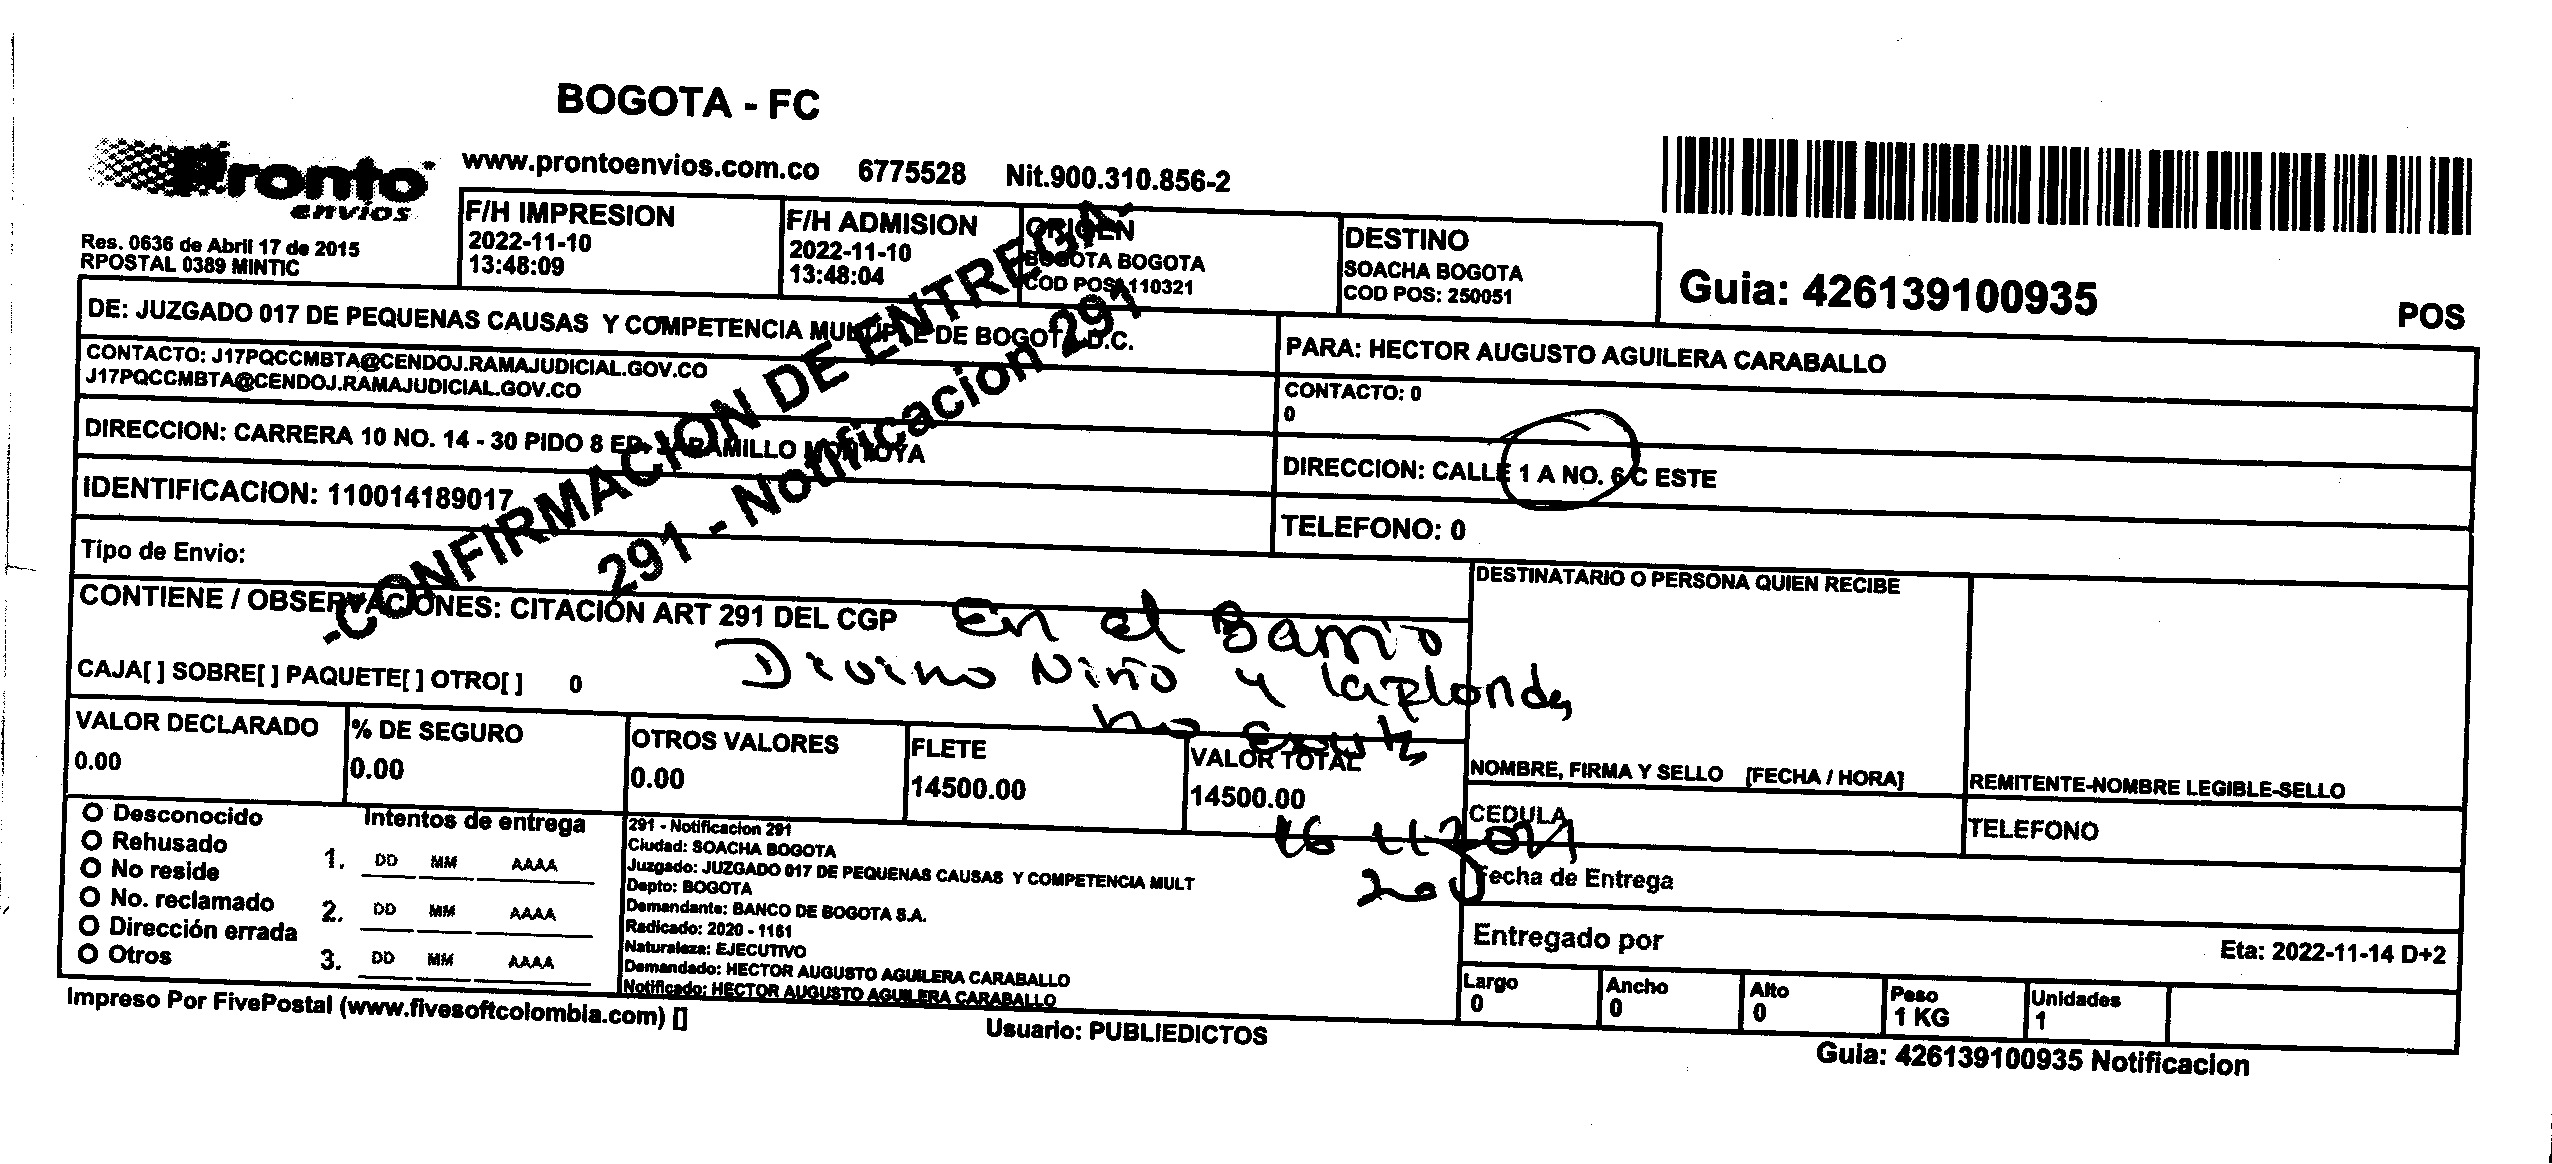 BOGOTA - FC
Pronto envíos
www.prontoenvios.com.co 6775528 Nit.900.310.856-2
Res. 0636 de Abril 17 de 2015
RPOSTAL 0389 MINTIC
F/H IMPRESION
2022-11-10
13:48:09
F/H ADMISION
2022-11-10
13:48:04
ORIGEN
BOGOTA BOGOTA
COD POS: 110321
DESTINO
SOACHA BOGOTA
COD POS: 250051
Guia: 426139100935
POS
DE: JUZGADO 017 DE PEQUENAS CAUSAS Y COMPETENCIA MULTIPLE DE BOGOTA D.C.
CONTACTO: J17PQCCMBTA@CENDOJ.RAMAJUDICIAL.GOV.CO
J17PQCCMBTA@CENDOJ.RAMAJUDICIAL.GOV.CO
DIRECCION: CARRERA 10 NO. 14 - 30 PIDO 8 ED. JARAMILLO MONTOYA
IDENTIFICACION: 110014189017
PARA: HECTOR AUGUSTO AGUILERA CARABALLO
CONTACTO: 0
0
DIRECCION: CALLE 1 A NO. 6 C ESTE
TELEFONO: 0
-CONFIRMACION DE ENTREGA-
291 - Notificacion 291
Tipo de Envio:
CONTIENE / OBSERVACIONES: CITACIÓN ART 291 DEL CGP
En el Barrio
Divino Niño y
CAJA[ ] SOBRE[ ] PAQUETE[ ] OTRO[ ] 0
DESTINATARIO O PERSONA QUIEN RECIBE
NOMBRE, FIRMA Y SELLO [FECHA / HORA]
REMITENTE-NOMBRE LEGIBLE-SELLO
VALOR DECLARADO
0.00
% DE SEGURO
0.00
OTROS VALORES
0.00
FLETE
14500.00
VALOR TOTAL
14500.00
CEDULA
TELEFONO
Desconocido
Rehusado
No reside
No. reclamado
Dirección errada
Otros
Intentos de entrega
1. DD MM AAAA
2. DD MM AAAA
3. DD MM AAAA
291 - Notificacion 291
Ciudad: SOACHA BOGOTA
Juzgado: JUZGADO 017 DE PEQUENAS CAUSAS Y COMPETENCIA MULT
Depto: BOGOTA
Demandante: BANCO DE BOGOTA S.A.
Radicado: 2020 - 1161
Naturaleza: EJECUTIVO
Demandado: HECTOR AUGUSTO AGUILERA CARABALLO
Notificado: HECTOR AUGUSTO AGUILERA CARABALLO
Fecha de Entrega
Entregado por
Eta: 2022-11-14 D+2
Largo
0
Ancho
0
Alto
0
Peso
1 KG
Unidades
1
Impreso Por FivePostal (www.fivesoftcolombia.com) []
Usuario: PUBLIEDICTOS
Guia: 426139100935 Notificacion